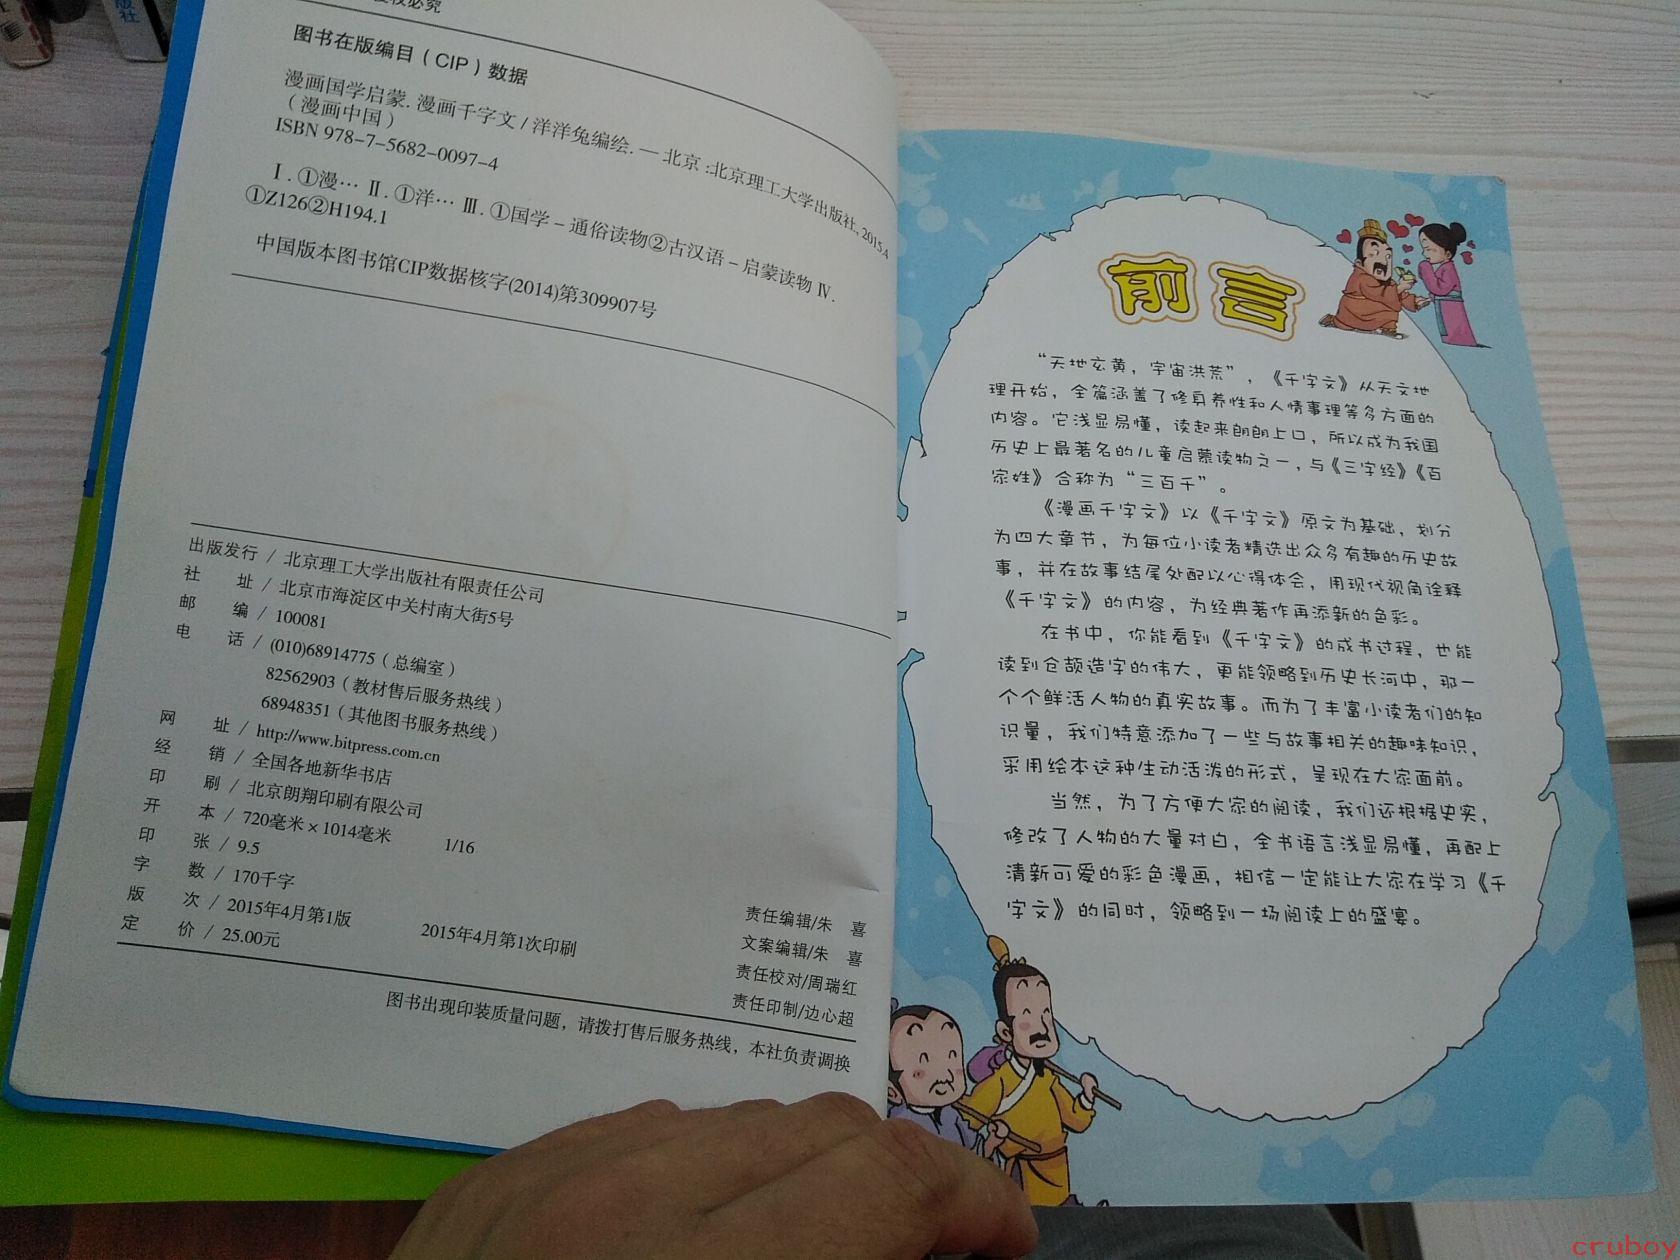 版社
必究
图书在版编目（CIP）数据
漫画国学启蒙. 漫画千字文 / 洋洋兔编绘. — 北京 :北京理工大学出版社, 2015.4
（漫画中国）
ISBN 978-7-5682-0097-4
Ⅰ. ①漫… Ⅱ. ①洋… Ⅲ. ①国学－通俗读物②古汉语－启蒙读物 Ⅳ.
①Z126②H194.1
中国版本图书馆CIP数据核字(2014)第309907号
出版发行 / 北京理工大学出版社有限责任公司
社 址 / 北京市海淀区中关村南大街5号
邮 编 / 100081
电 话 / (010)68914775（总编室）
82562903（教材售后服务热线）
68948351（其他图书服务热线）
网 址 / http://www.bitpress.com.cn
经 销 / 全国各地新华书店
印 刷 / 北京朗翔印刷有限公司
开 本 / 720毫米×1014毫米 1/16
印 张 / 9.5
字 数 / 170千字
版 次 / 2015年4月第1版 2015年4月第1次印刷
定 价 / 25.00元
责任编辑/朱 喜
文案编辑/朱 喜
责任校对/周瑞红
责任印制/边心超
图书出现印装质量问题，请拨打售后服务热线，本社负责调换
前言
“天地玄黄，宇宙洪荒”，《千字文》从天文地
理开始，全篇涵盖了修身养性和人情事理等多方面的
内容。它浅显易懂，读起来朗朗上口，所以成为我国
历史上最著名的儿童启蒙读物之一，与《三字经》《百
家姓》合称为“三百千”。
《漫画千字文》以《千字文》原文为基础，划分
为四大章节，为每位小读者精选出众多有趣的历史故
事，并在故事结尾处配以心得体会，用现代视角诠释
《千字文》的内容，为经典著作再添新的色彩。
在书中，你能看到《千字文》的成书过程，也能
读到仓颉造字的伟大，更能领略到历史长河中，那一
个个鲜活人物的真实故事。而为了丰富小读者们的知
识量，我们特意添加了一些与故事相关的趣味知识，
采用绘本这种生动活泼的形式，呈现在大家面前。
当然，为了方便大家的阅读，我们还根据史实，
修改了人物的大量对白，全书语言浅显易懂，再配上
清新可爱的彩色漫画，相信一定能让大家在学习《千
字文》的同时，领略到一场阅读上的盛宴。
cruboy